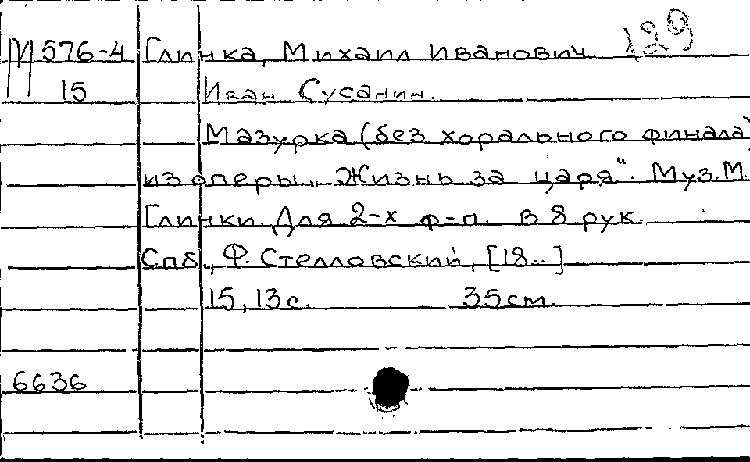 М 576-4 Глинка, Михаил Иванович 129
15 Иван Сусанин.
Мазурка (без хорального финала)
из оперы „Жизнь за царя". Муз. М.
Глинки. Для 2-х ф-п. в 8 рук.
Спб., Ф. Стелловский, [18..]
15, 13 с. 35 см.
6636